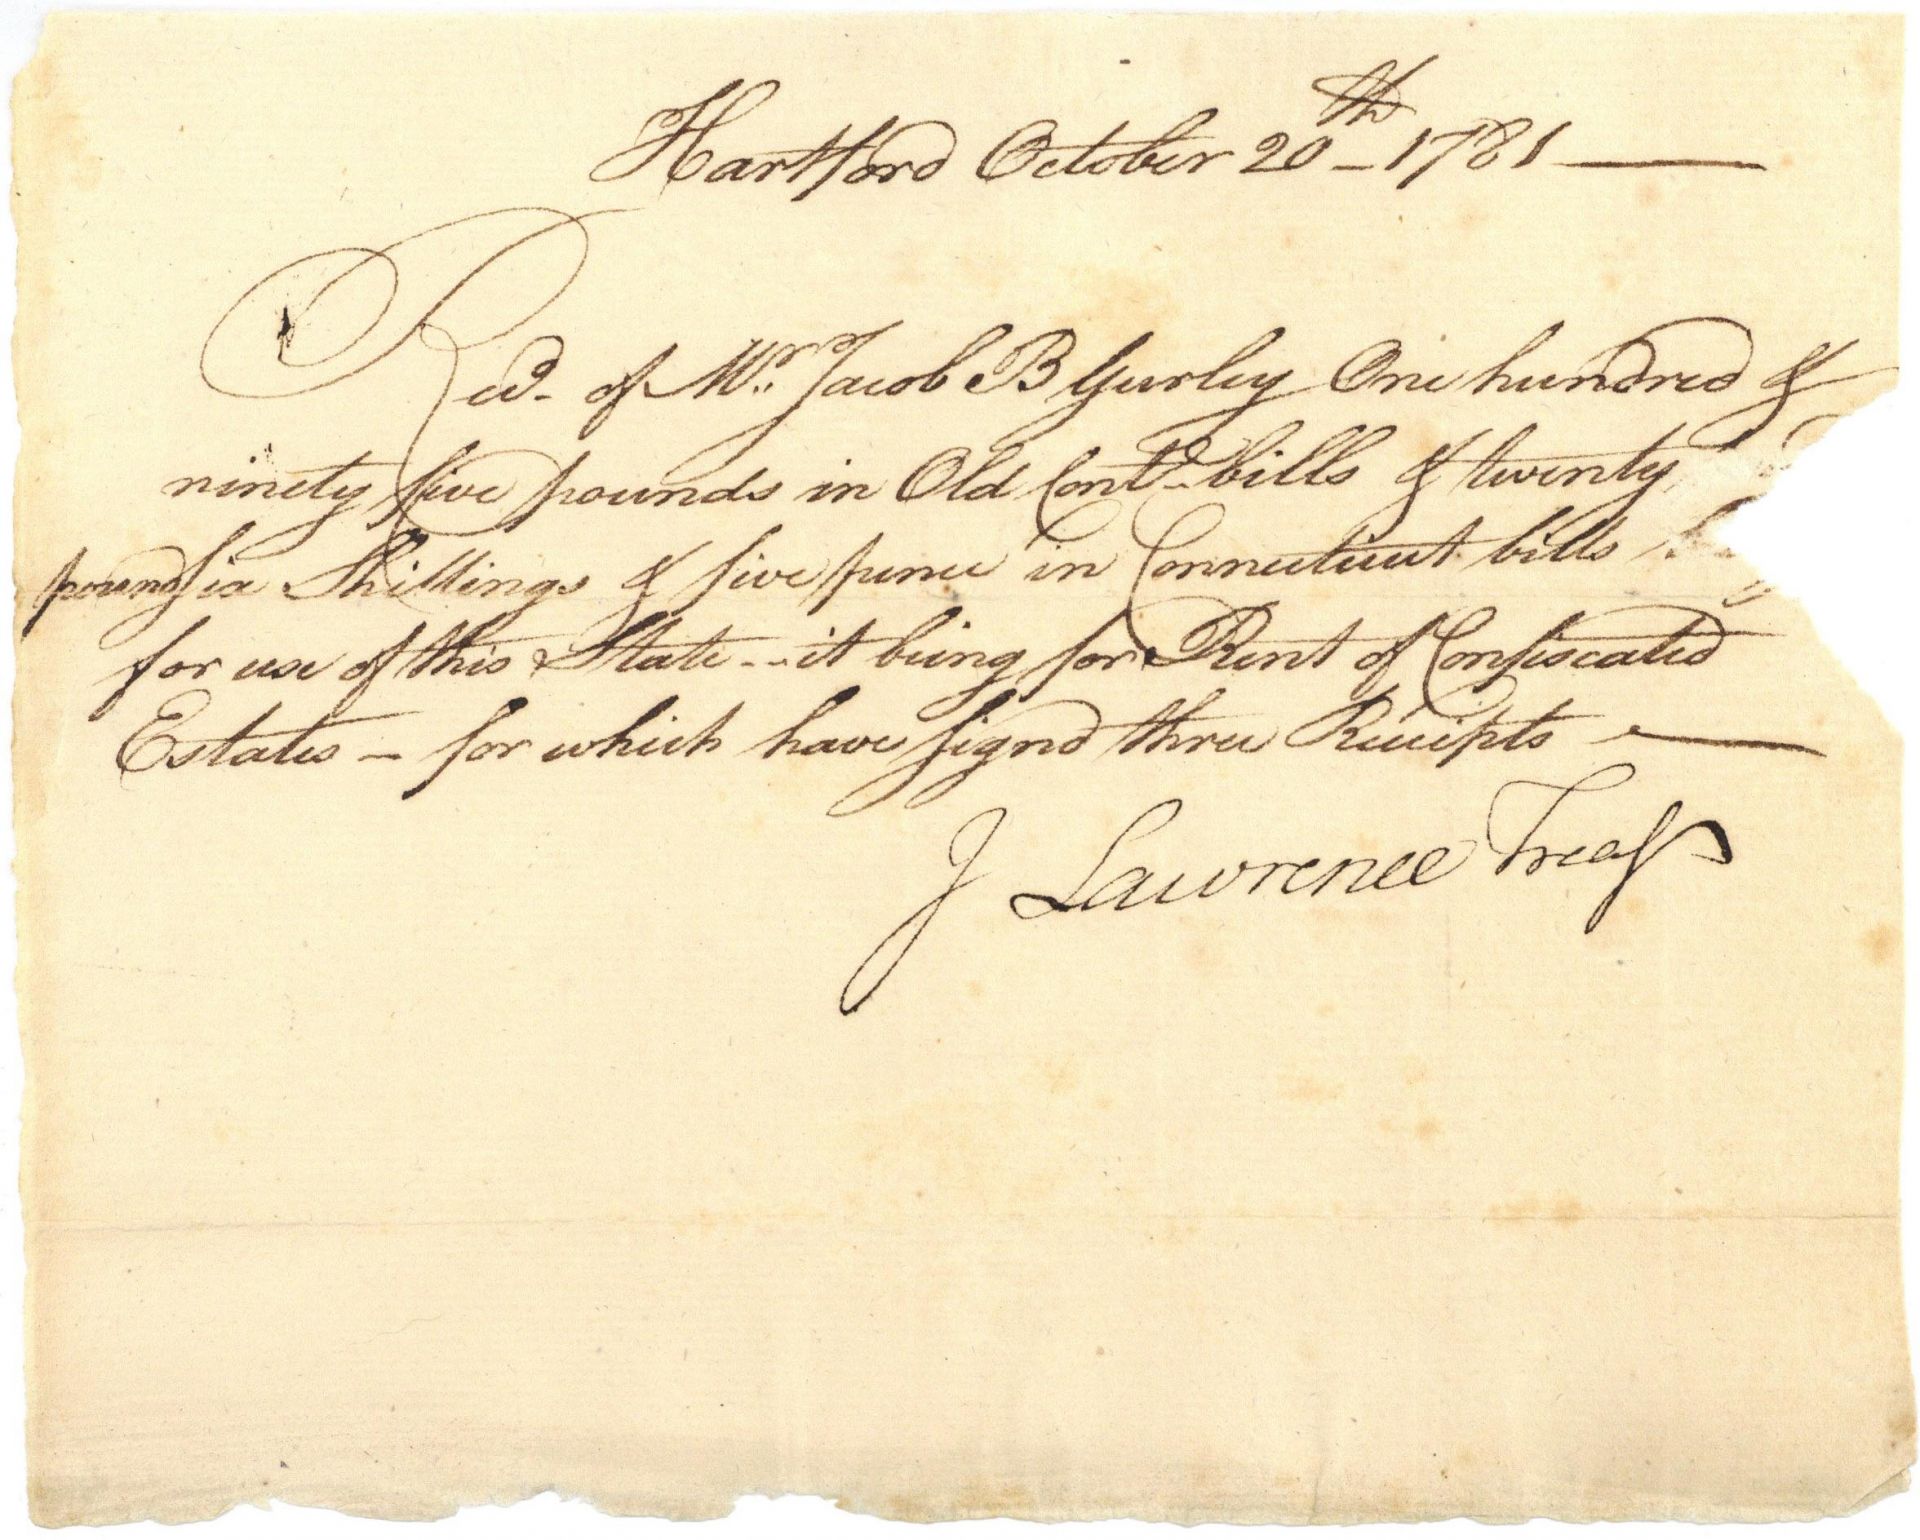 Hartford October 20th - 1781
Recd. of Mr. Jacob B Gurley One hundred &
ninety five pounds in Old Contl. bills & twenty
pound six Shillings & five pence in Connecticut bills
for use of this State - it being for Rent of Confiscated
Estates - for which have signd three Receipts
J Lawrence Treasr